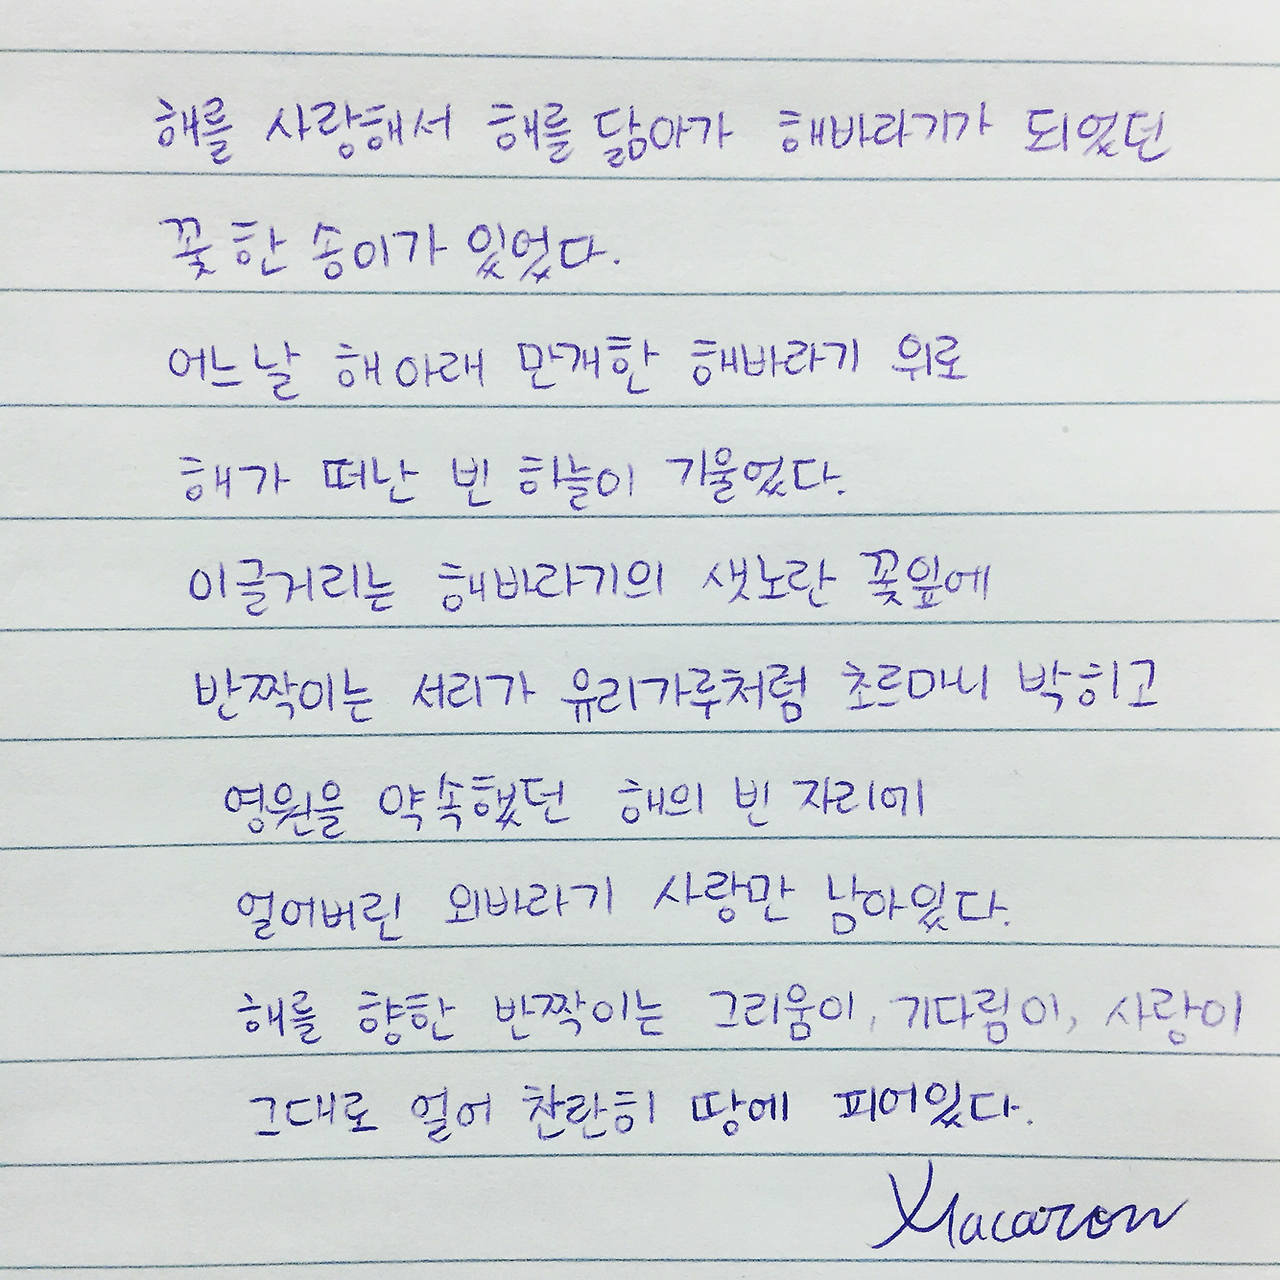 해를 사랑해서 해를 닮아가 해바라기가 되었던
꽃 한 송이가 있었다.
어느날 해 아래 만개한 해바라기 위로
해가 떠난 빈 하늘이 기울었다.
이글거리는 해바라기의 샛노란 꽃잎에
반짝이는 서리가 유리가루처럼 초르마니 박히고
영원을 약속했던 해의 빈 자리에
얼어버린 외바라기 사랑만 남아있다.
해를 향한 반짝이는 그리움이, 기다림이, 사랑이
그대로 얼어 찬란히 땅에 피어있다.
Macaron